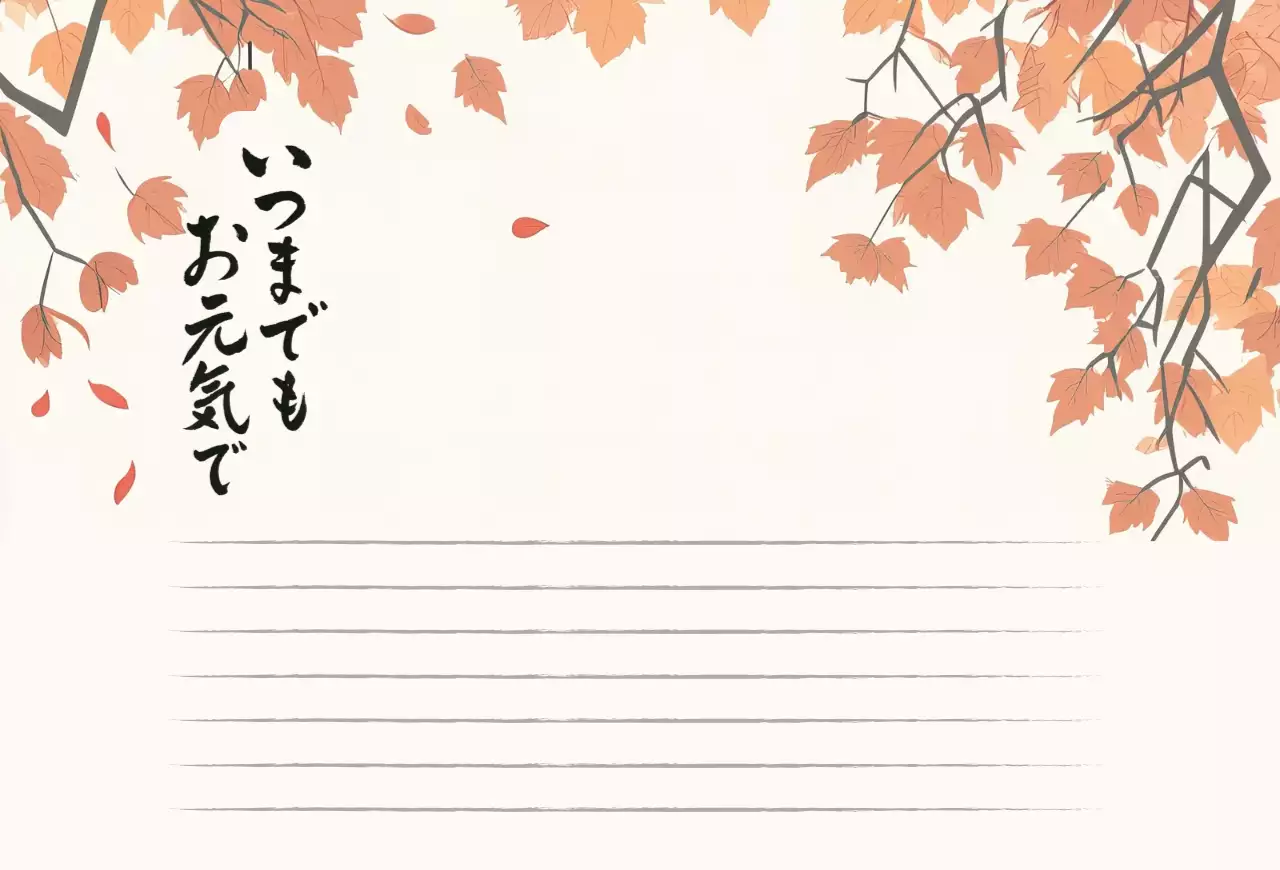 いつまでも
お元気で